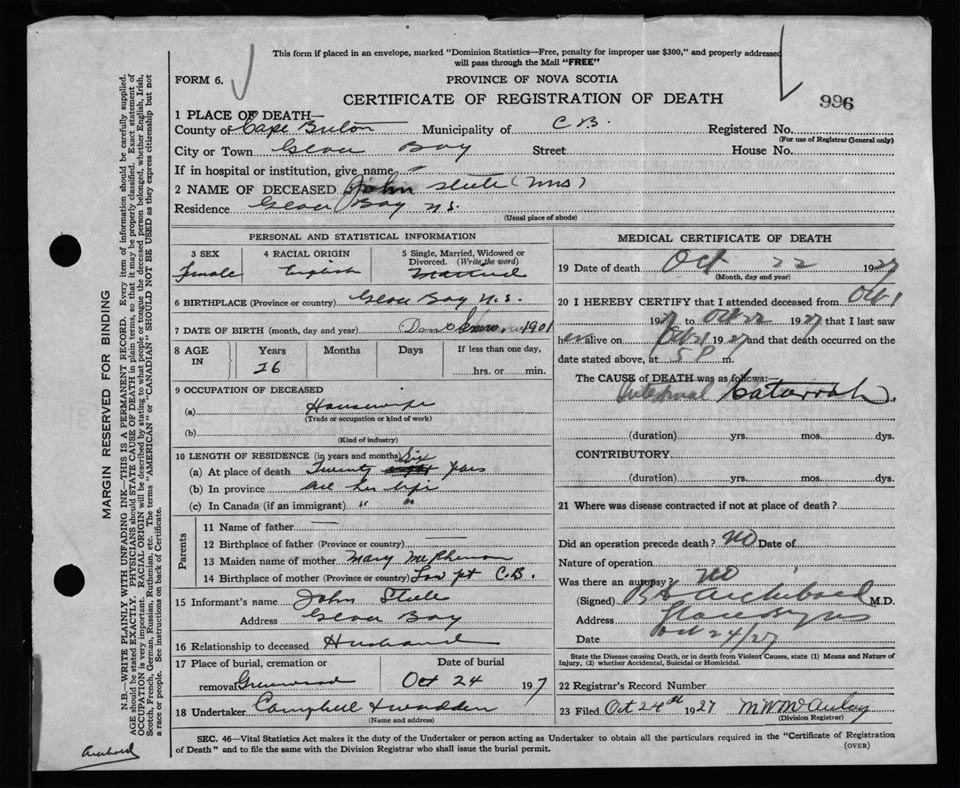 This form if placed in an envelope, marked "Dominion Statistics—Free, penalty for improper use $300," and properly addressed
will pass through the Mail "FREE"
FORM 6.
PROVINCE OF NOVA SCOTIA
CERTIFICATE OF REGISTRATION OF DEATH
996
1 PLACE OF DEATH—
County of Cape Breton Municipality of C B. Registered No.
(For use of Registrar General only)
City or Town Glace Bay Street House No.
If in hospital or institution, give name —
2 NAME OF DECEASED John Steele (Mrs)
Residence Glace Bay N.S.
(Usual place of abode)
PERSONAL AND STATISTICAL INFORMATION
3 SEX 4 RACIAL ORIGIN 5 Single, Married, Widowed or Divorced. (Write the word)
female English Married
6 BIRTHPLACE (Province or country) Glace Bay N.S.
7 DATE OF BIRTH (month, day and year) 1901
8 AGE IN Years Months Days If less than one day,
26 hrs. or min.
9 OCCUPATION OF DECEASED
(a) Housewife
(Trade or occupation or kind of work)
(b)
(Kind of industry)
10 LENGTH OF RESIDENCE (in years and months)
(a) At place of death Twenty Six years
(b) In province all her life
(c) In Canada (if an immigrant) " "
Parents
11 Name of father —
12 Birthplace of father (Province or country) —
13 Maiden name of mother Mary McPherson
14 Birthplace of mother (Province or country) C.B.
15 Informant's name John Steele
Address Glace Bay
16 Relationship to deceased Husband
17 Place of burial, cremation or removal Greenwood Date of burial Oct 24 1927
18 Undertaker Campbell & Wadden
(Name and address)
MEDICAL CERTIFICATE OF DEATH
19 Date of death Oct 22 1927
(Month, day and year)
20 I HEREBY CERTIFY that I attended deceased from Oct 1
1927 to Oct 22 1927 that I last saw
her alive on Oct 21 1927 and that death occurred on the
date stated above, at 5 P m.
The CAUSE of DEATH was as follows:
Intestinal Catarrah.
(duration) yrs. mos. dys.
CONTRIBUTORY
(duration) yrs. mos. dys.
21 Where was disease contracted if not at place of death?
Did an operation precede death? No Date of
Nature of operation
Was there an autopsy? No
(Signed) Archibald M.D.
Address Glace Bay NS
Date Oct 24/27
State the Disease causing Death, or in death from Violent Causes, state (1) Means and Nature of
Injury, (2) whether Accidental, Suicidal or Homicidal.
22 Registrar's Record Number
23 Filed Oct 24th 1927 M W McAulay
(Division Registrar)
SEC. 46—Vital Statistics Act makes it the duty of the Undertaker or person acting as Undertaker to obtain all the particulars required in the "Certificate of Registration
of Death" and to file the same with the Division Registrar who shall issue the burial permit.
(OVER)
MARGIN RESERVED FOR BINDING
N.B.—WRITE PLAINLY WITH UNFADING INK—THIS IS A PERMANENT RECORD. Every item of information should be carefully supplied.
AGE should be stated EXACTLY. PHYSICIANS should STATE CAUSE OF DEATH in plain terms, so that it may be properly classified. Exact statement of
OCCUPATION is very important. RACIAL ORIGIN will be described by stating to what people or tongue the deceased person belonged, whether English, Irish,
Scotch, French, German, Russian, Ruthenian, etc. The terms "AMERICAN" or "CANADIAN" SHOULD NOT BE USED as they express citizenship but not
a race or people. See instructions on back of Certificate.